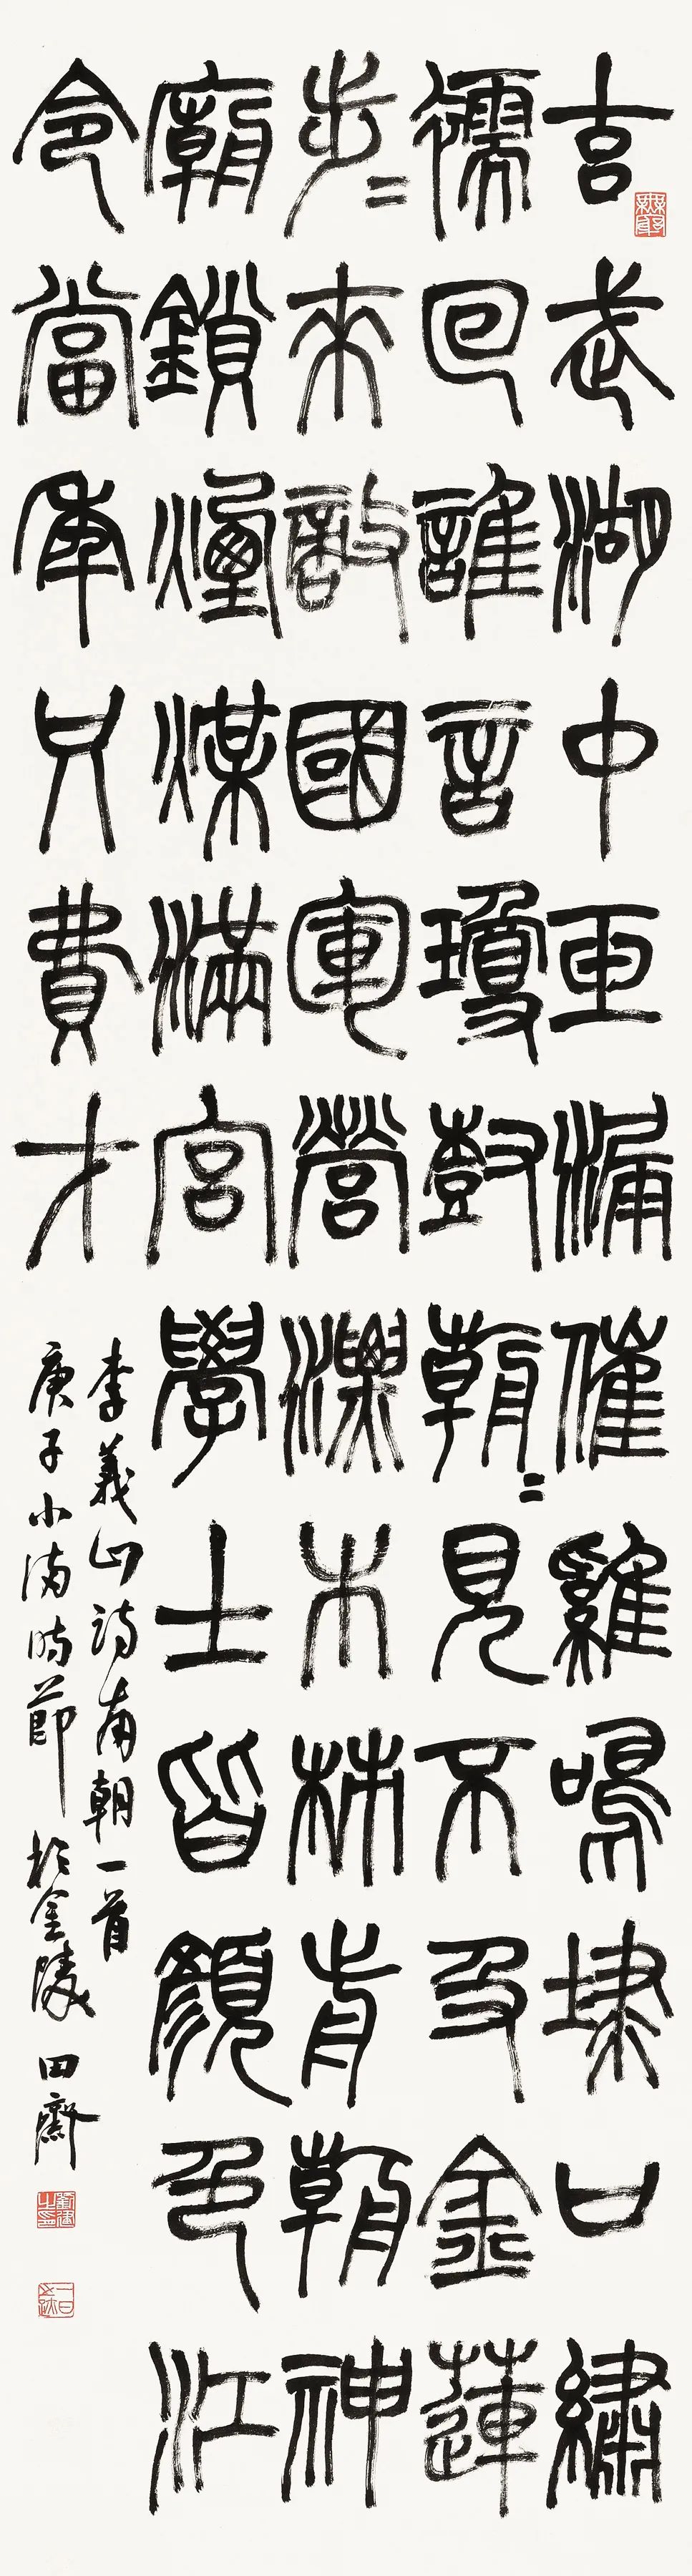 玄武湖中玉漏催雞鳴埭口繡
襦回誰言瓊樹朝〻見不及金蓮
步〻來敵國軍營漂木柿前朝神
廟鎖煙煤滿宮學士皆顏色江
令當年只費才
李義山詩南朝一首
庚子小滿時節於金陵 田齋